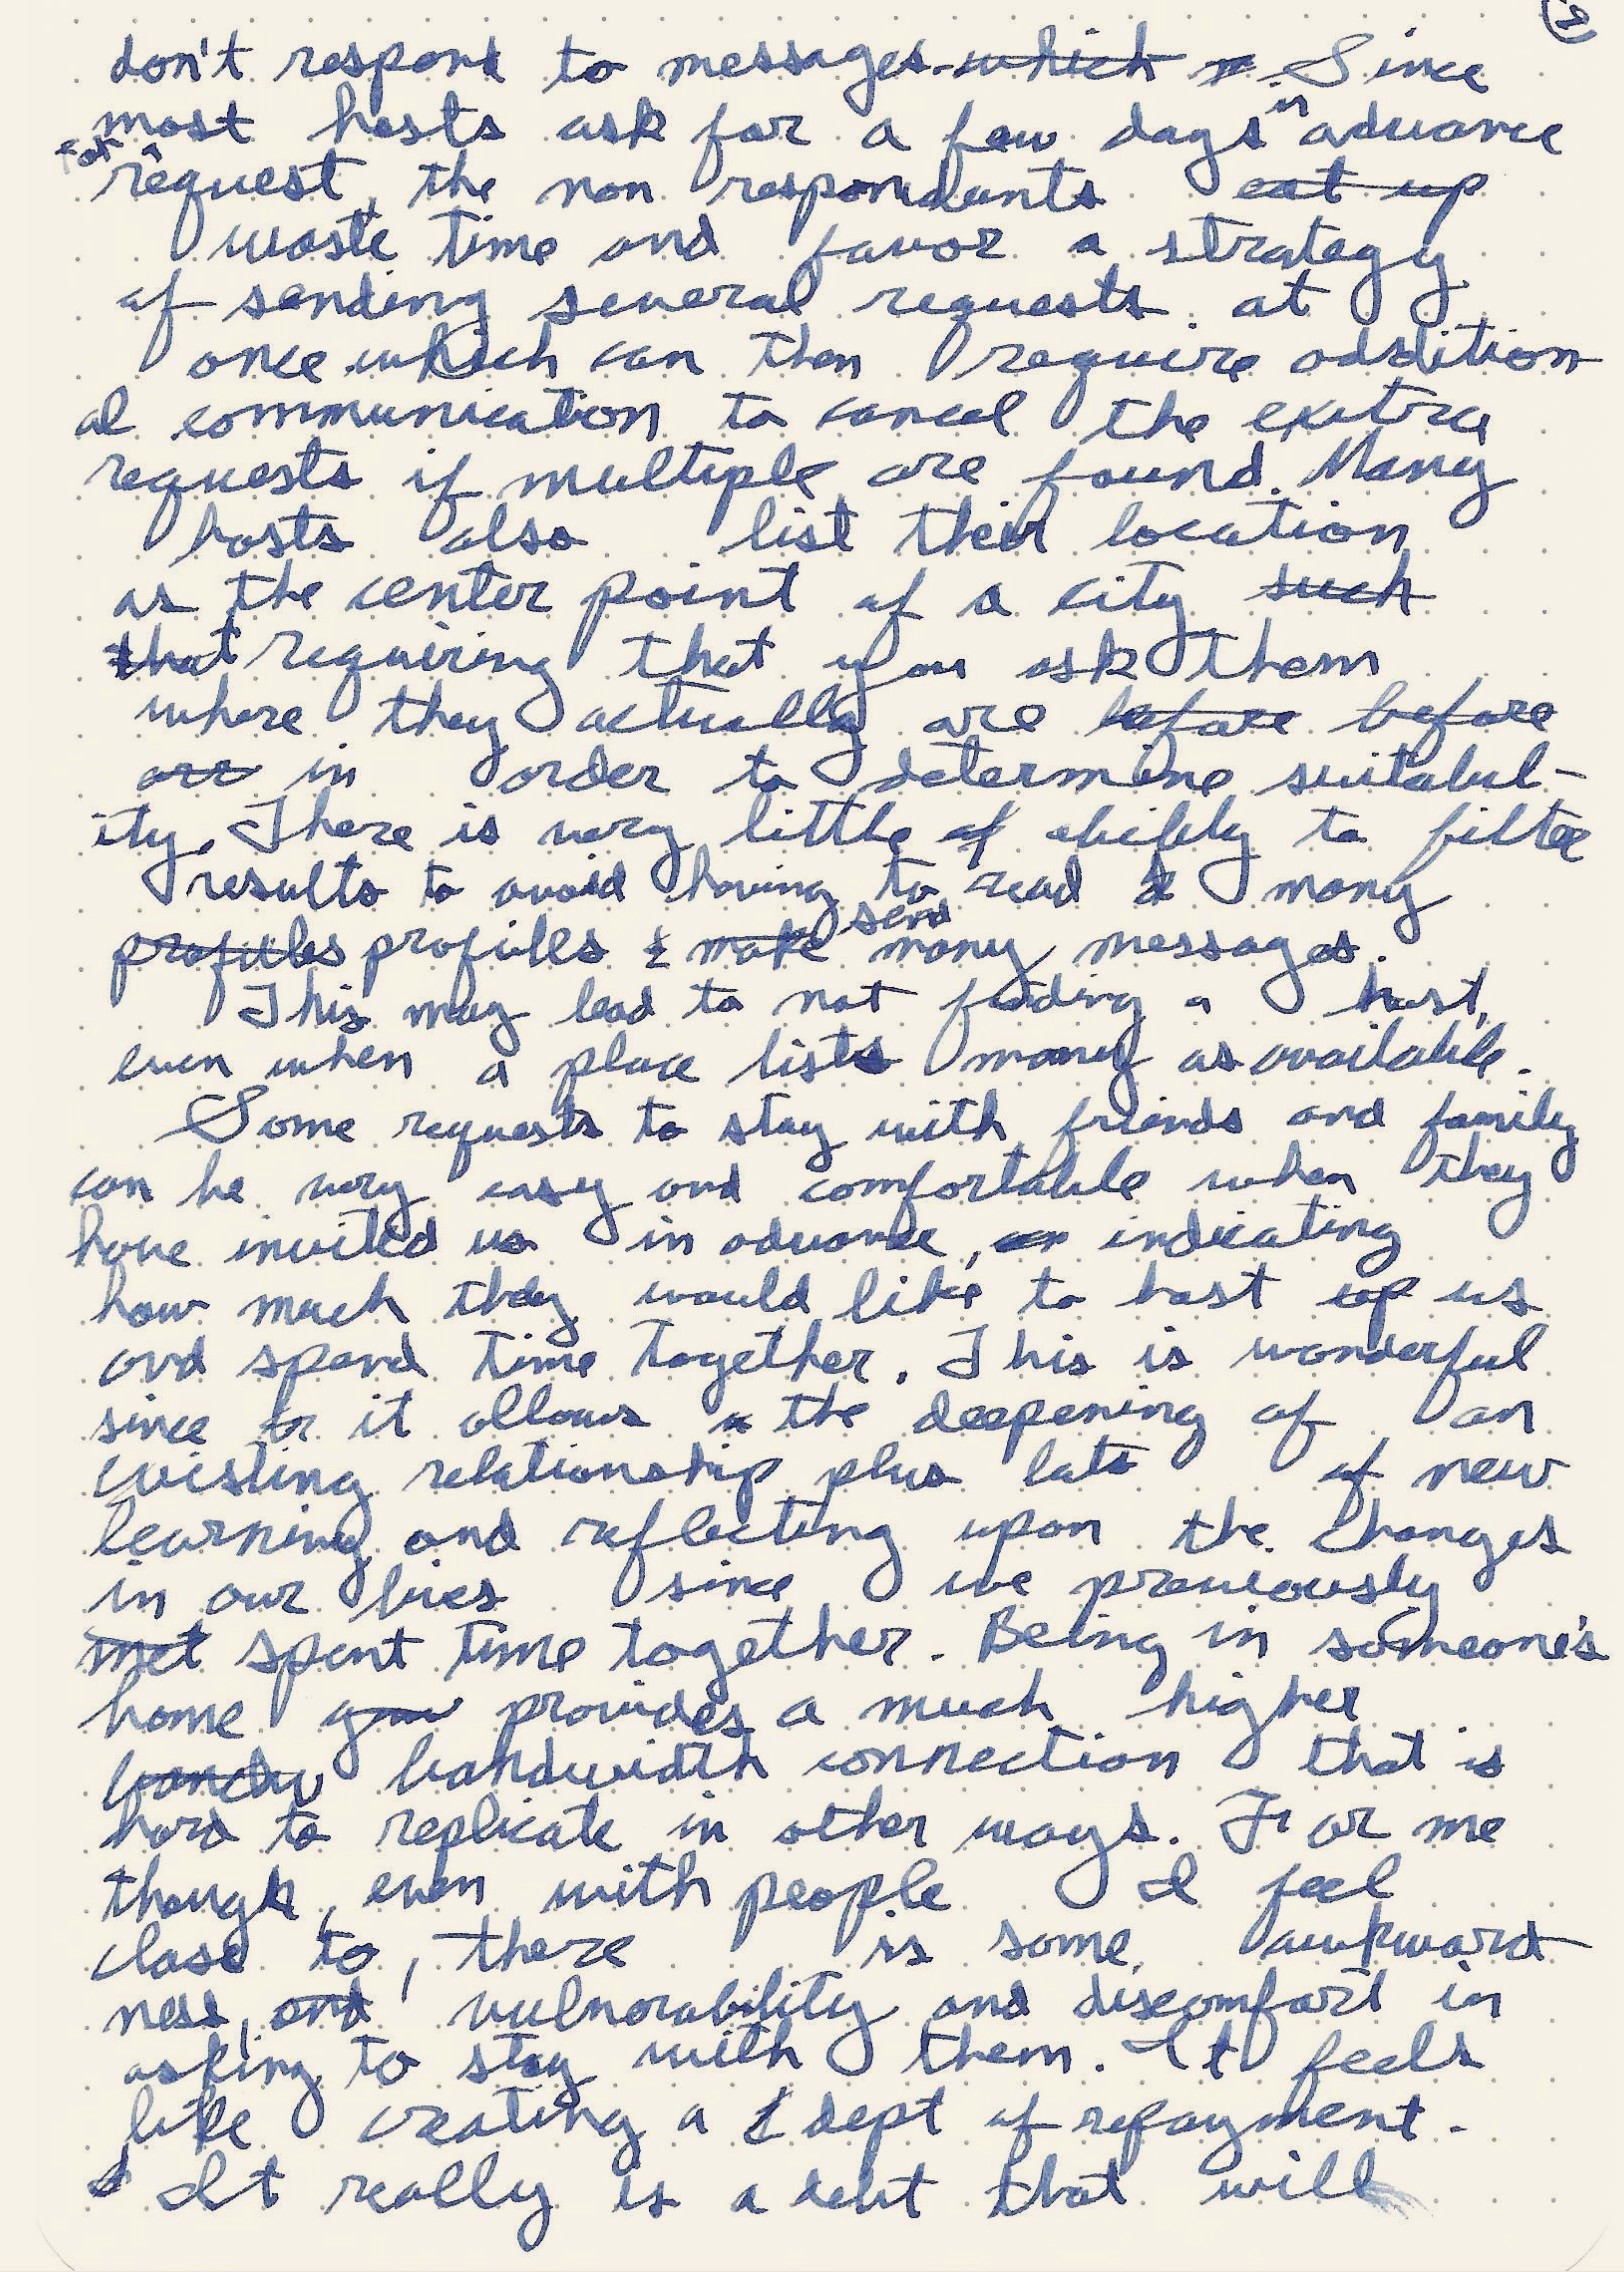 don't respond to messages. which Since
most hosts ask for a few days in advance
for request, the non respondants eat up
waste time and favor a strategy
of sending several requests at
once which can then require addition
al communication to cancel the exutra
requests if multiple are found. Many
hosts also list their location
as the center point of a city such
that requiring that you ask them
where they actually are before before
are in order to determine suitabil-
ity. There is very little of ability to filter
results to avoid having to read & many
profiles profiles & make send many messages.
This may lead to not finding a host,
even when a place lists many as available.
Some requests to stay with friends and family
can be very easy and comfortable when they
have invited us in advance, or indicating
how much they would like to host up us
and spend time together. This is wonderful
since it allows the deepening of an
existing relationship plus lots of new
learning and reflecting upon the changes
in our lives since we previously
met spent time together. Being in someone's
home provides a much higher
bandwidth connection that is
hard to replicate in other ways. For me
though, even with people I feel
close to, there is some awkward
ness, and vulnerability and discomfort in
asking to stay with them. It feels
like creating a dept of repayment.
It really is a debt that will